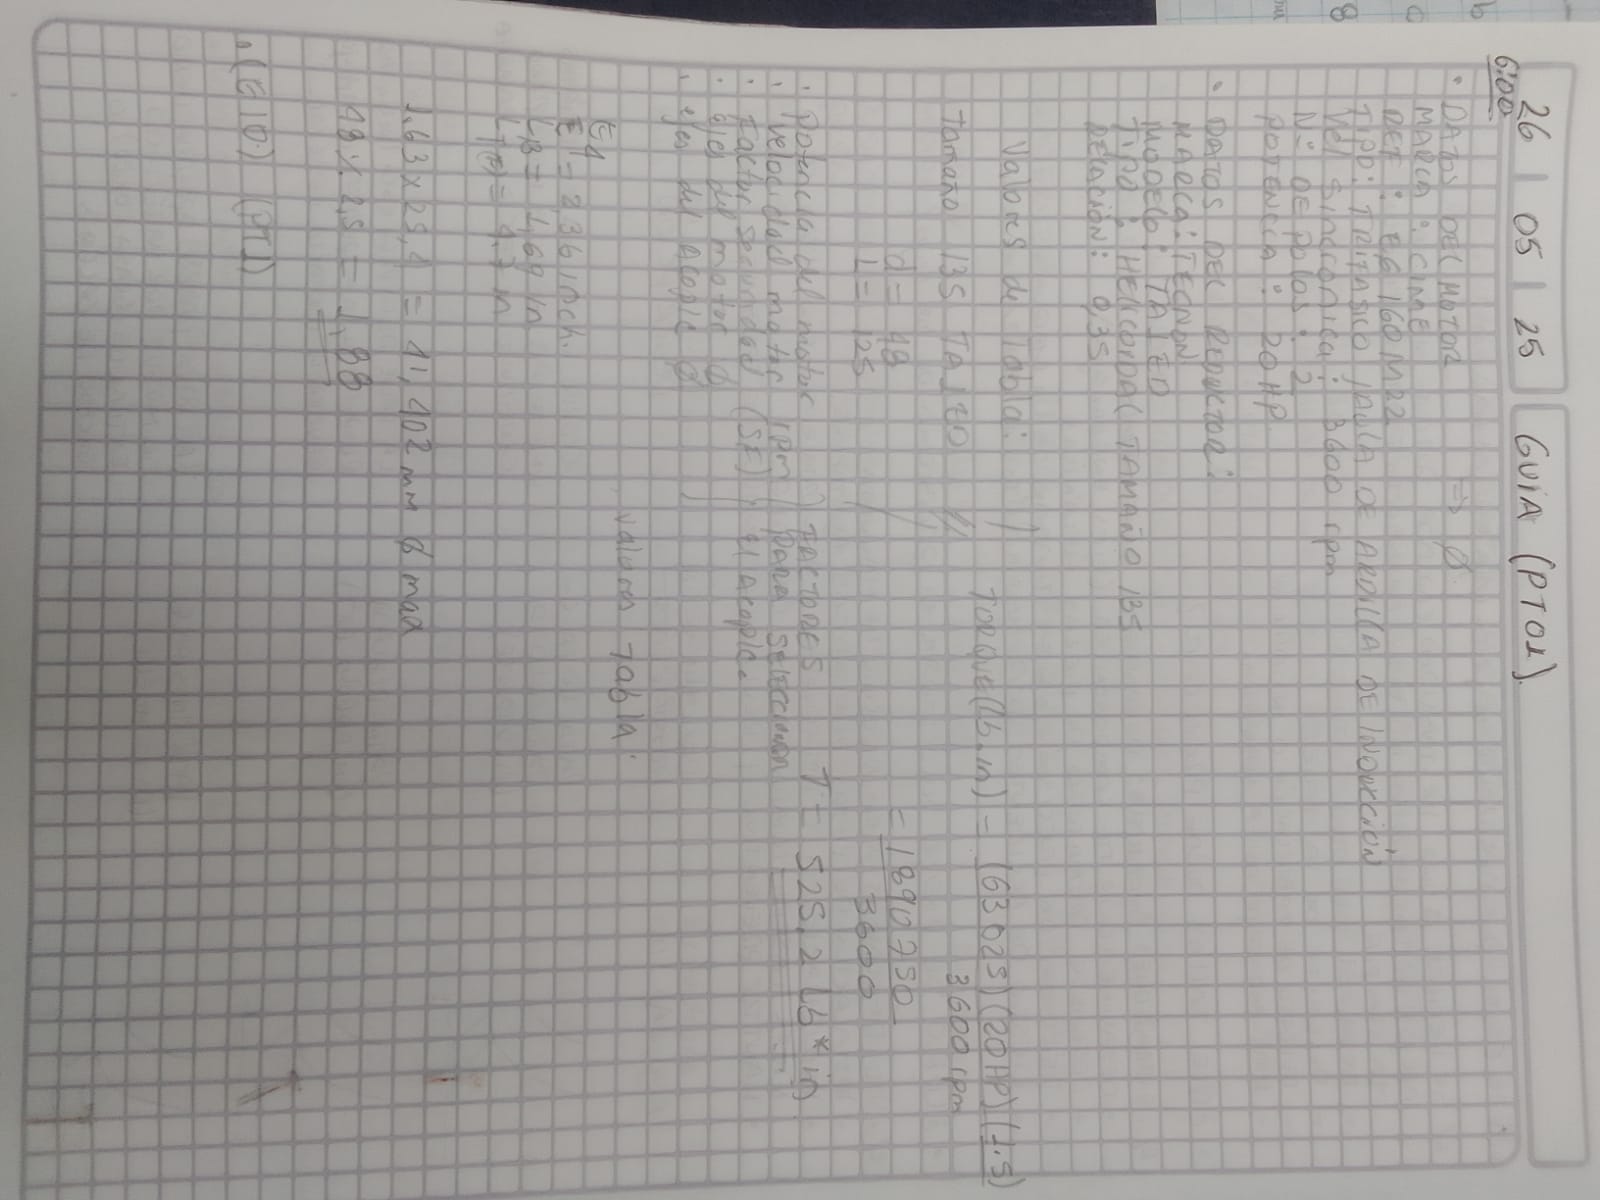 26 | 05 | 25 GUIA (PT01).
6:00
• DATOS DEL MOTOR => Ø
MARCA :
REF : E6 160M22
TIPO: TRIFASICO JAULA DE ARDILLA DE INDUCCIÓN
Vel Sincronica: 3600 rpm
Nº DE Polos : 2
POTENCIA : 20 HP
• DATOS DEL REDUCTOR:
MARCA: TECNON
MODELO: TA1ED
TIPO : HELICOIDAL TAMAÑO 135
RELACIÓN: 9,35
Valores de Tabla:
TORQUE(lb.in) = (63 025) (20HP) (1.5)
3600 rpm
Tamaño 135 TA1ED
d = 48
L = 125
= 1890750
3600
T = 525,2 Lb*in
• Potencia del motor
• Velocidad motor rpm
• Factor seguridad (SF)
• ejes del motor Ø
• ejes del Acople Ø
FACTORES
PARA SELECCIONAR
el Acople.
Valores Tabla:
E4
E = 2,36 inch.
LB = 1,69 in
= 4.7 in
1.63 x 25,4 = 41,402 mm Ø
= 1,88
• (E10) (PT1)